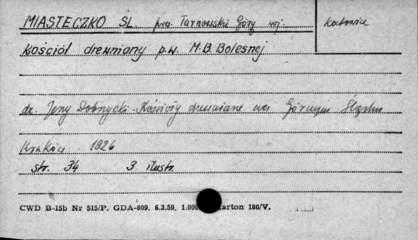 MIASTECZKO ŚL. pow. Tarnowskie Góry woj. Katowice
Kościół drewniany p.w. M.B. Bolesnej
dr. Jerzy Dobrzycki - Kościoły drewniane na Górnym Śląsku
Kraków 1926
str. 34 3 ilustr.
CWD B-15b Nr 515/P. GDA-809. 6.3.59. 1.000 Karton 180/V.